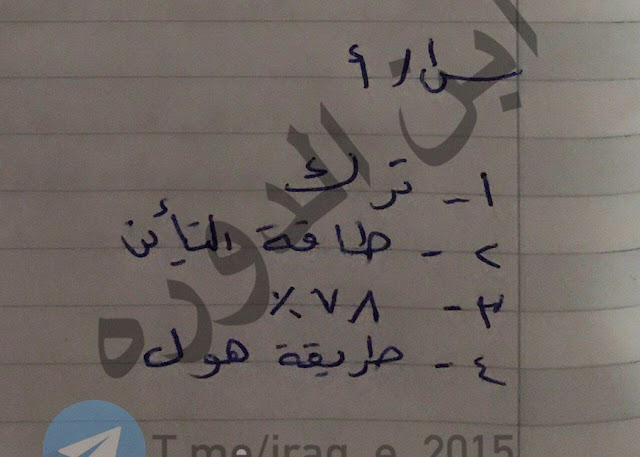 س١/ أ
١- ترك
٢- طاقة التأين
٣- ٧٨٪
٤- طريقة هول
ابن الدوره
T.me/iraq_e_2015